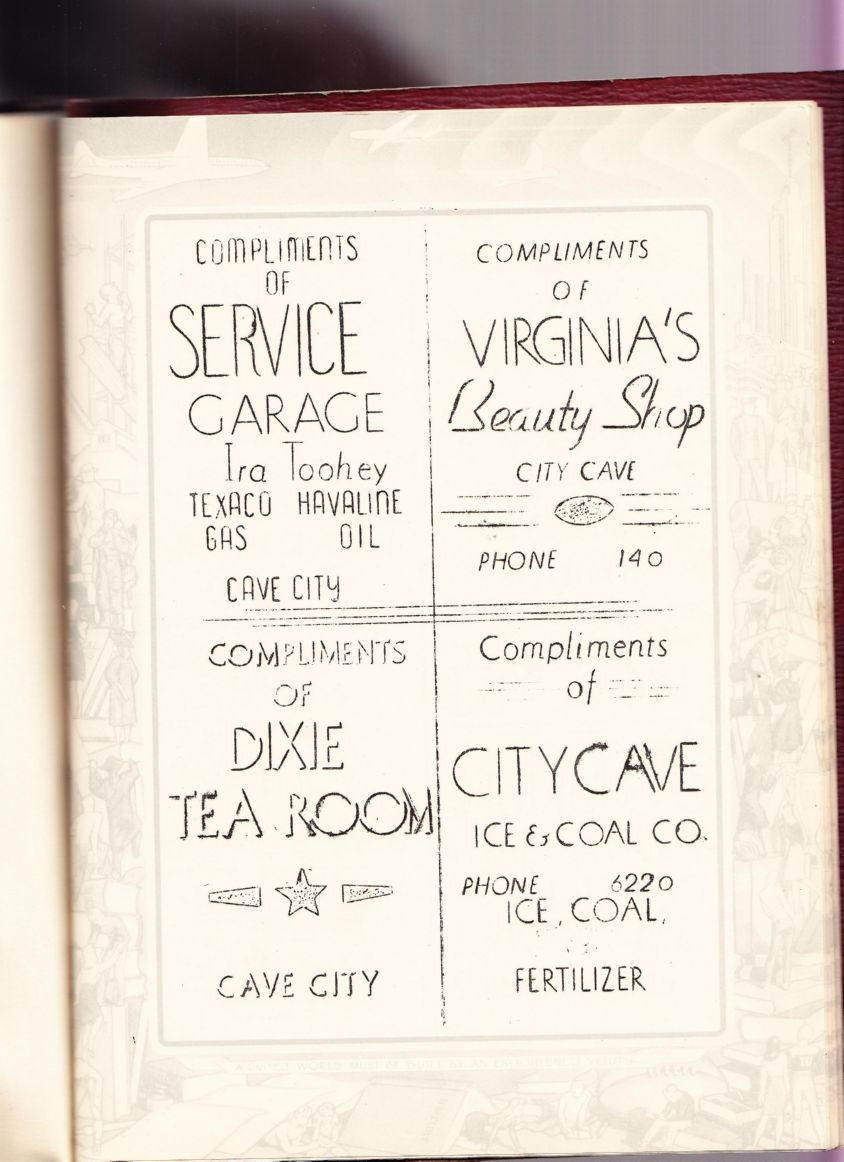 COMPLIMENTS
OF
SERVICE
GARAGE
Ira Toohey
TEXACO HAVALINE
GAS OIL
CAVE CITY
COMPLIMENTS
OF
VIRGINIA'S
Beauty Shop
CITY CAVE
PHONE 140
COMPLIMENTS
OF
DIXIE
TEA ROOM
CAVE CITY
Compliments
of
CITY CAVE
ICE & COAL CO.
PHONE 6220
ICE, COAL,
FERTILIZER
A UNITED WORLD MUST BE BUILT BY AN ENLIGHTENED YOUTH